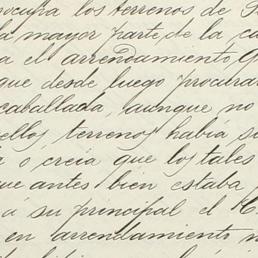 ocupa los terrenos de
a mayor parte de la cu
a el arrendamiento
que desde luego procurar
caballada, aunque no
ellos, terrenos había su
o creia que los tales
ue antes bien estaba
á su principal el
en arrendamiento